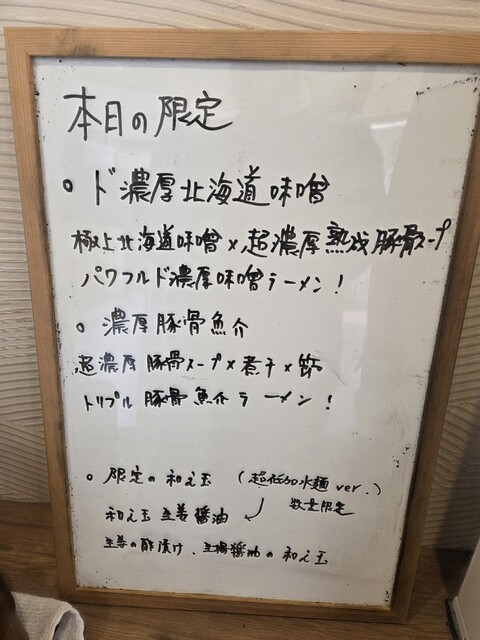 本日の限定
○ ド濃厚北海道味噌
極上北海道味噌×超濃厚熟成豚骨スープ
パワフルド濃厚味噌ラーメン!
○ 濃厚豚骨魚介
超濃厚豚骨スープ×煮干×節
トリプル豚骨魚介ラーメン!
○ 限定の和え玉 (超低加水麺 ver.)
数量限定
和え玉 生姜醤油
生姜の酢漬け、生揚醤油の和え玉